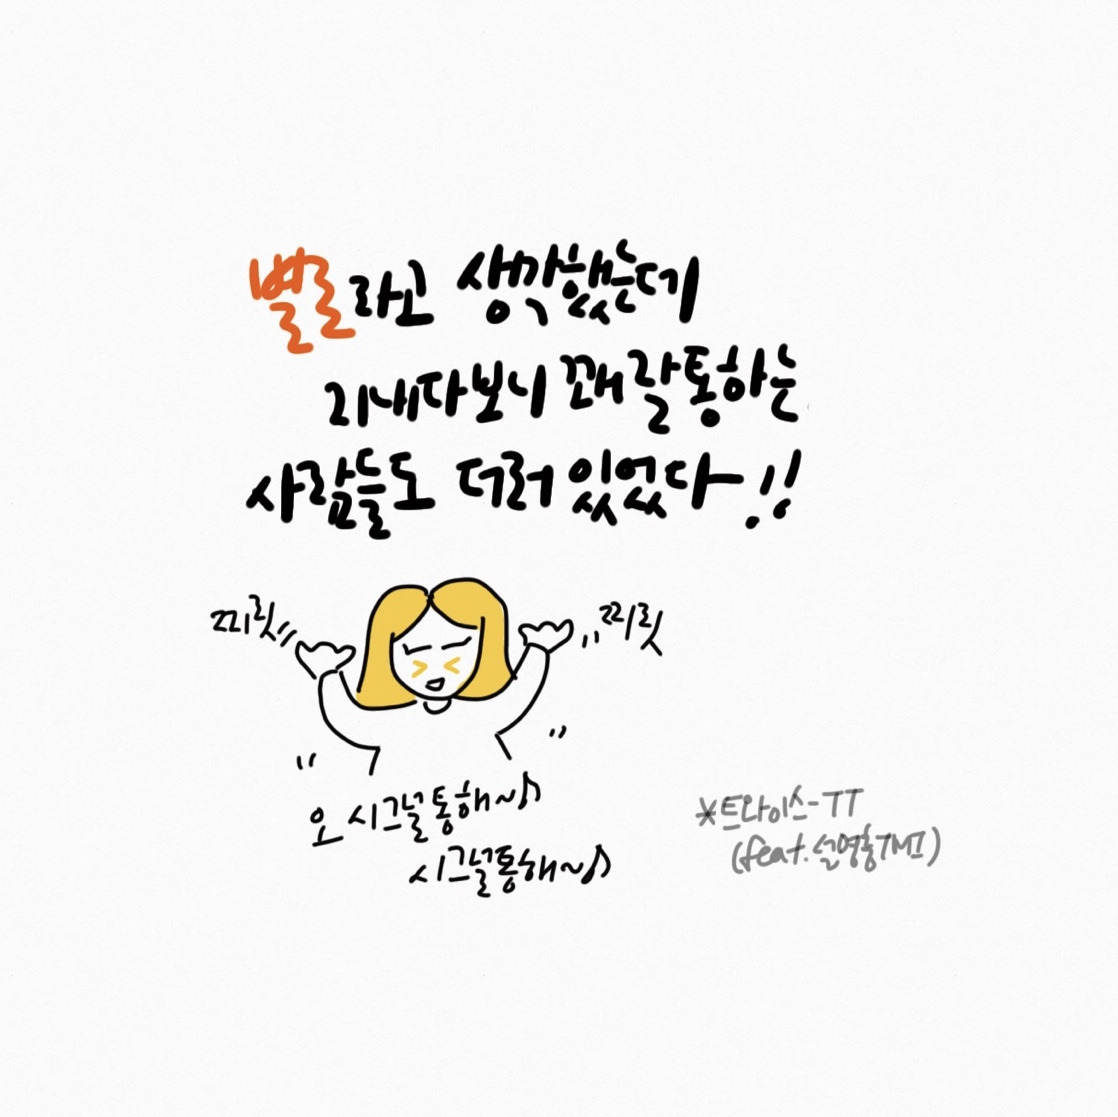 별로라고 생각했는데
지내다보니 꽤 잘 통하는
사람들도 더러 있었다-!!
찌릿 찌릿
오 시그널 통해~♪
시그널 통해~♪
*트와이스-TT
(feat. 설명충TMI)